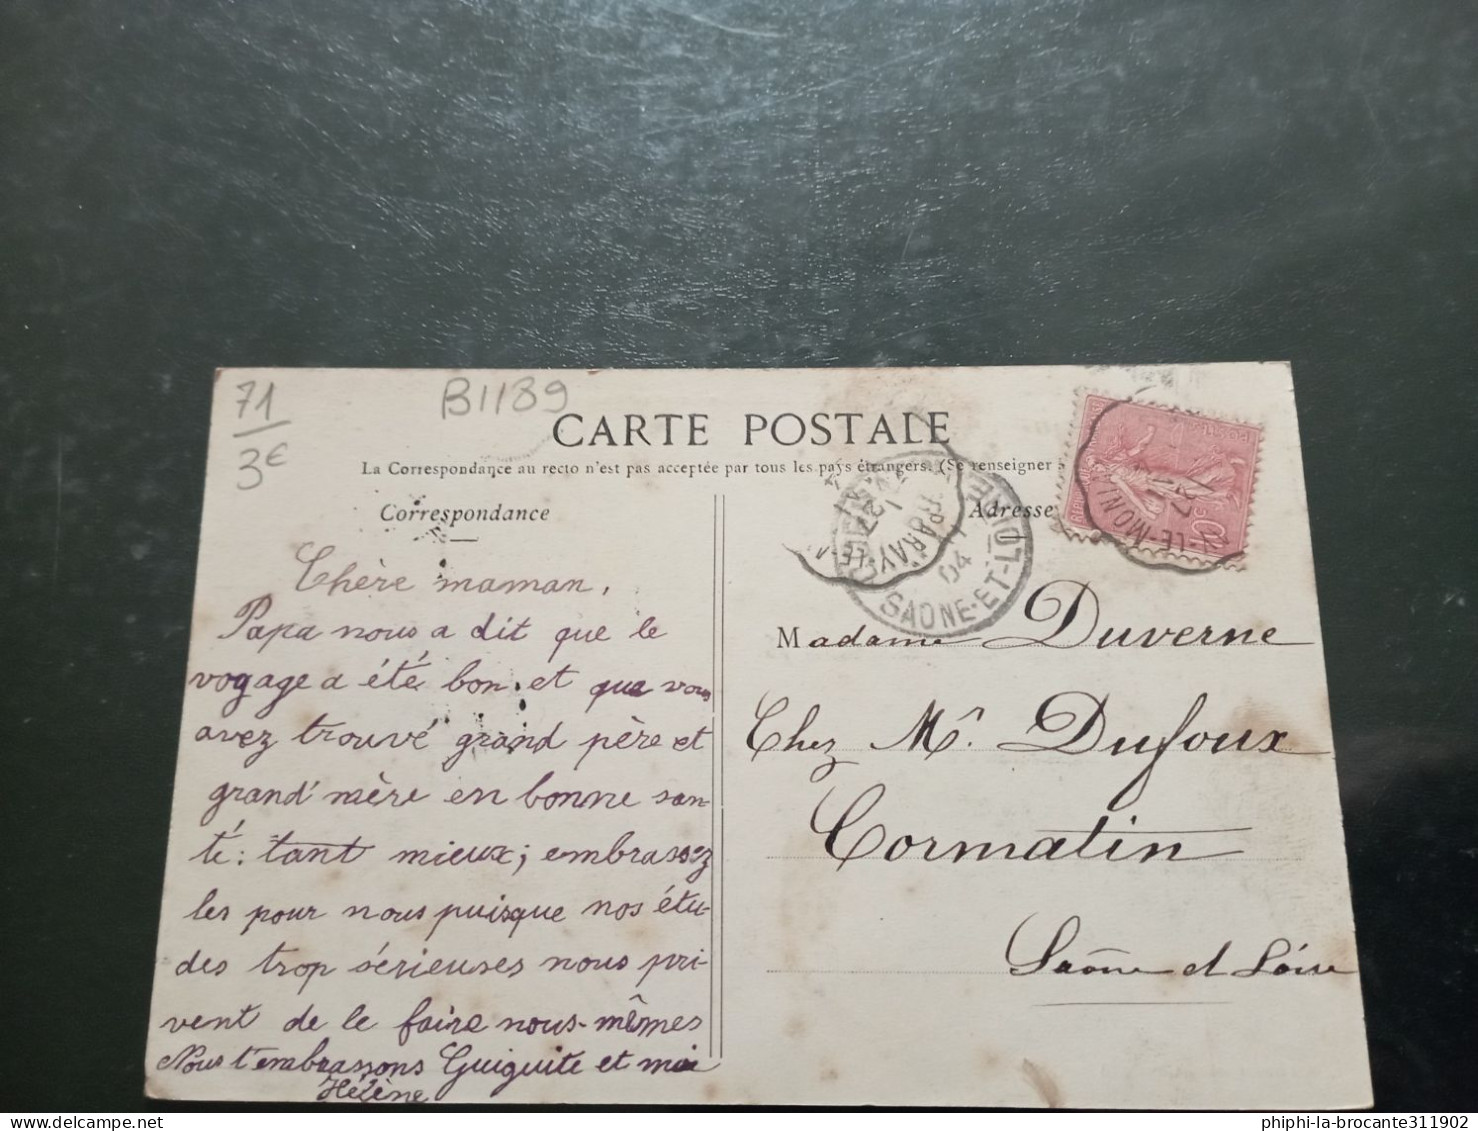 71
3€
B1189
CARTE POSTALE
La Correspondance au recto n'est pas acceptée par tous les pays étrangers. (Se renseigner
Correspondance
Adresse
Chère maman,
Papa nous a dit que le
voyage a été bon et que vous
avez trouvé grand père et
grand'mère en bonne san-
té: tant mieux; embrassez
les pour nous puisque nos étu-
des trop sérieuses nous pri-
vent de le faire nous-mêmes
Nous t'embrassons Guiguite et moi
Hélène
Madame Duverne
Chez Mr. Dufoux
Cormatin
Saône et Loire
PARAY
04
SAONE-ET-LOIRE
LE-MONI
27
POSTES
10
phiphi-la-brocante311902